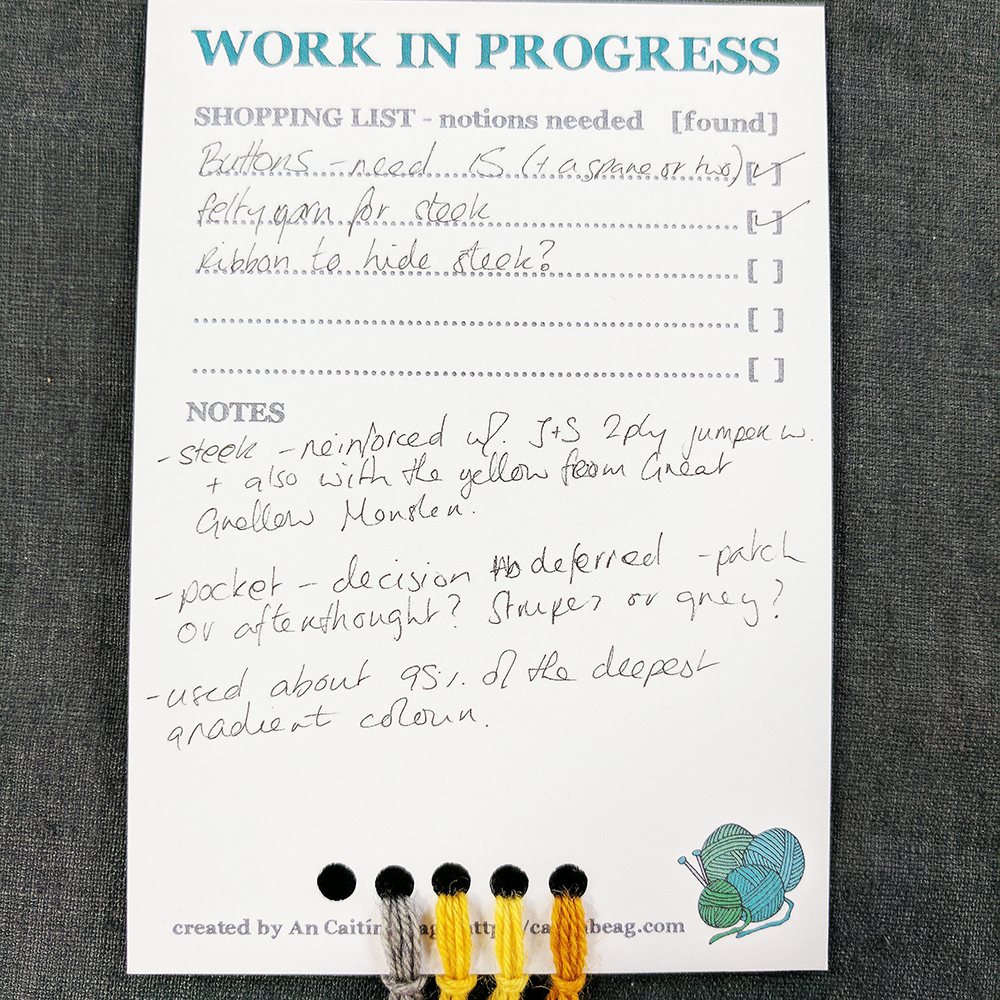 WORK IN PROGRESS
SHOPPING LIST - notions needed [found]
Buttons - need 15 (+ a spare or two) [✓]
felty yarn for steek [✓]
Ribbon to hide steek? [ ]
[ ]
[ ]
NOTES
- steek - reinforced w/. J+S 2ply jumper w.
+ also with the yellow from Great
Grellow Monster.
- pocket - decision deferred - patch
or afterthought? Stripes or grey?
- used about 95% of the deepest
gradient colour.
created by An Caitín http://caitinbeag.com